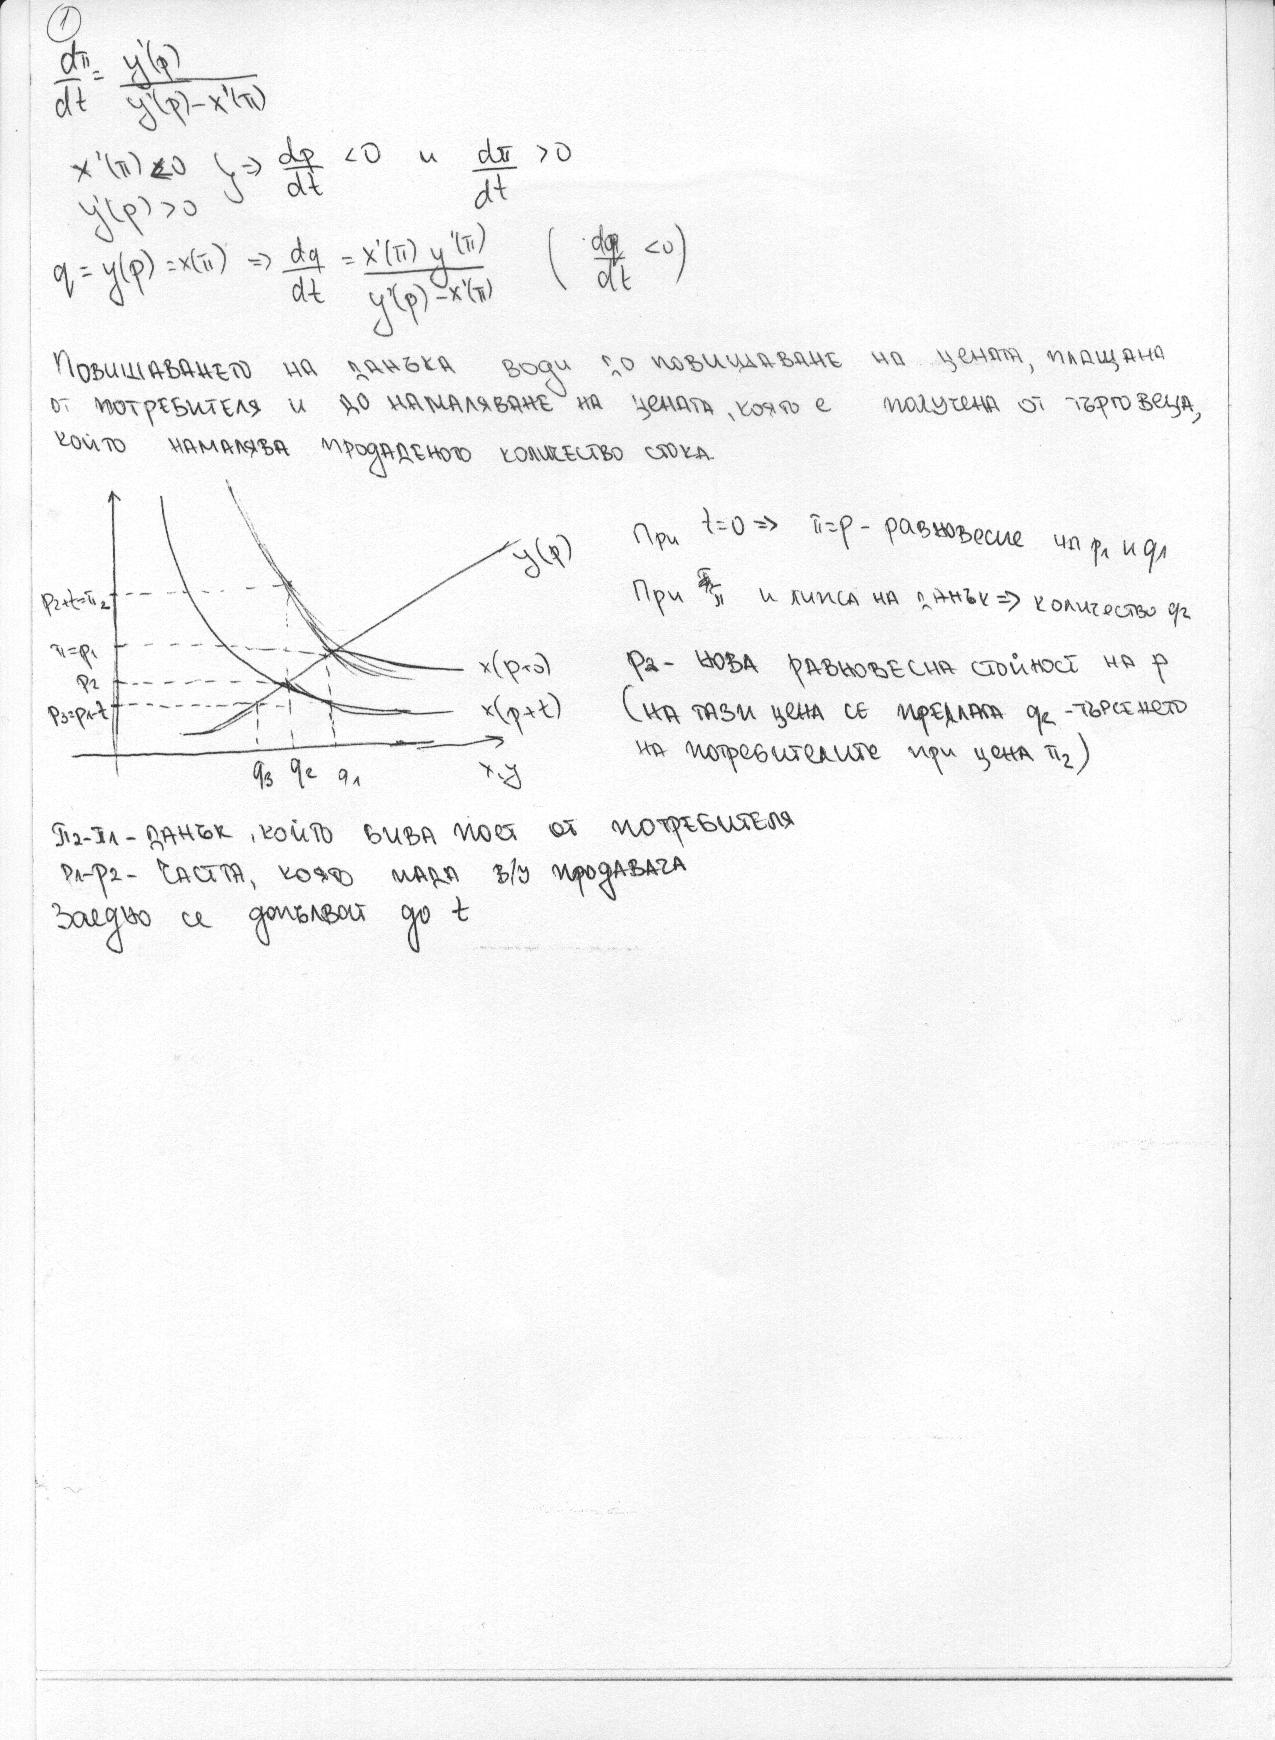 1
dπ/dt = y'(p) / (y'(p) – x'(π))
x'(π) < 0 } => dp/dt < 0 и dπ/dt > 0
y'(p) > 0
q = y(p) = x(π) => dq/dt = x'(π) y'(π) / (y'(p) – x'(π)) (dq/dt < 0)
Повишаването на данъка води до повишаване на цената, плащана
от потребителя и до намаляване на цената, която е получена от търговеца,
който намалява продаденото количество стока.
При t=0 => π=p – равновесие на p1 и q1
y(p)
p2+t=π2
При π и липса на данък => количество q2
π=p1
x(p+0)
p2 – нова равновесна стойност на p
p2
p3=p1-t
x(p+t)
(на тази цена се предлага q2 – търсенето
на потребителите при цена π2)
q3 q2 q1
x,y
π2-π1 – данък, който бива от потребителя
p1-p2 – частта, която пада в/у продавача
Заедно се допълват до t